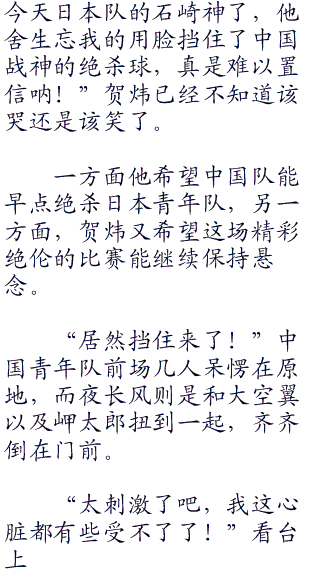 今天日本队的石崎神了，他
舍生忘我的用脸挡住了中国
战神的绝杀球，真是难以置
信呐！”贺炜已经不知道该
哭还是该笑了。
一方面他希望中国队能
早点绝杀日本青年队，另一
方面，贺炜又希望这场精彩
绝伦的比赛能继续保持悬
念。
“居然挡住来了！”中
国青年队前场几人呆愣在原
地，而夜长风则是和大空翼
以及岬太郎扭到一起，齐齐
倒在门前。
“太刺激了吧，我这心
脏都有些受不了了！”看台
上